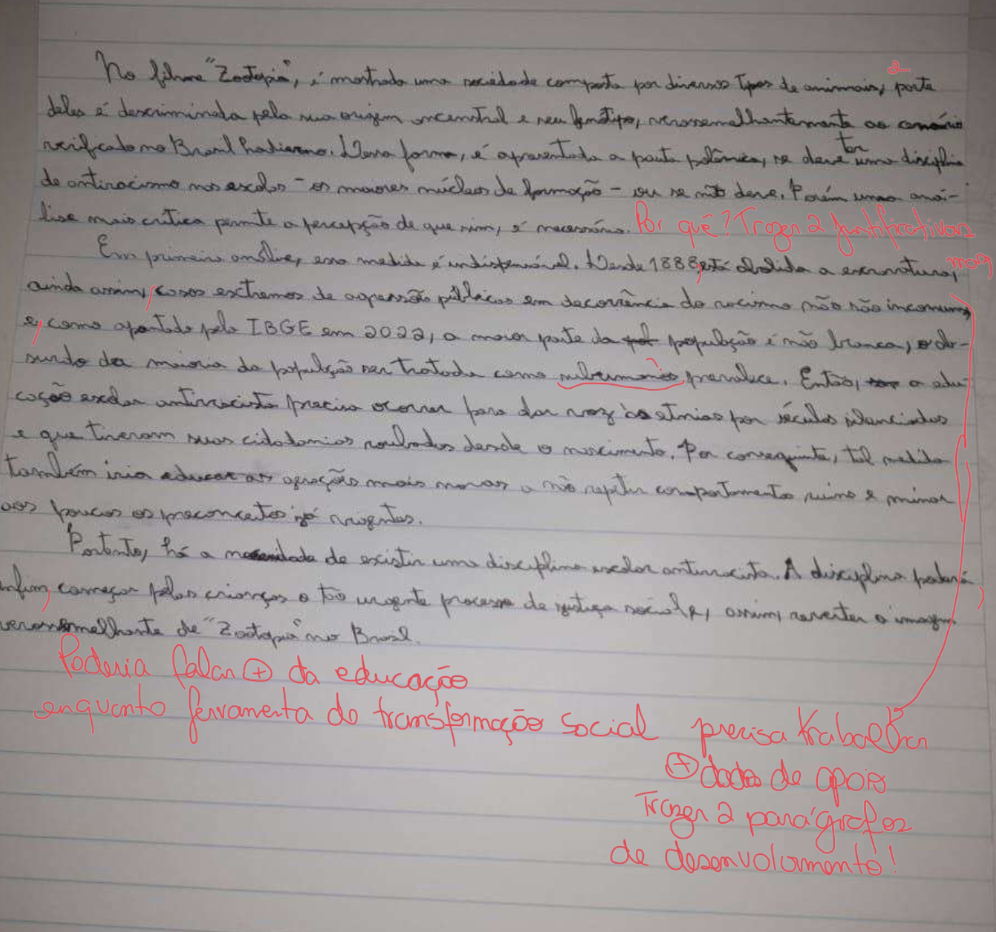 No filme "Zootopia", é mostrada uma sociedade composta por diversos tipos de animais, e parte
deles é descriminada pela sua origem ancenstral e seu fenótipo, verossemelhantemente ao cenário
verificado no Brasil hodierno. Dessa forma, é apresentada a pauta polêmica, se deve ter uma disciplina
de antiracismo nas escolas - os maiores núcleos de formação - ou se não deve. Porém uma aná-
lise mais crítica permite a percepção de que sim, é necessário. Por quê? Trazer 2 justificativas
Em primeira análise, essa medida é indispensável. Desde 1888, está abolida a escravatura,
ainda assim, casos extremos de agressão públicas em decorrência do racismo não são incomuns,
e, como apontado pelo IBGE em 2022, a maior parte da população é não branca, o ab-
surdo da maioria da população ser tratada como prevalece. Então, a edu-
cação escolar antirracista precisa ocorrer para dar voz às etnias por séculos silenciadas
e que tiveram suas cidadanias roubadas desde o nascimento. Por conseguinte, tal medida
também iria educar as gerações mais novas a não repetir comportamentos ruins e minar
aos poucos os preconceitos já vigentes.
Portanto, há a necessidade de existir uma disciplina escolar antirracista. A disciplina poderá,
enfim, começar pelas crianças o tão urgente processo de justiça social e, assim, reverter a imagem
verossemelhante de "Zootopia" no Brasil.
Poderia falar + da educação
enquanto ferramenta de transformação social
precisa trabalhar
+ dados de apoio
Trazer 2 parágrafos
de desenvolvimento!